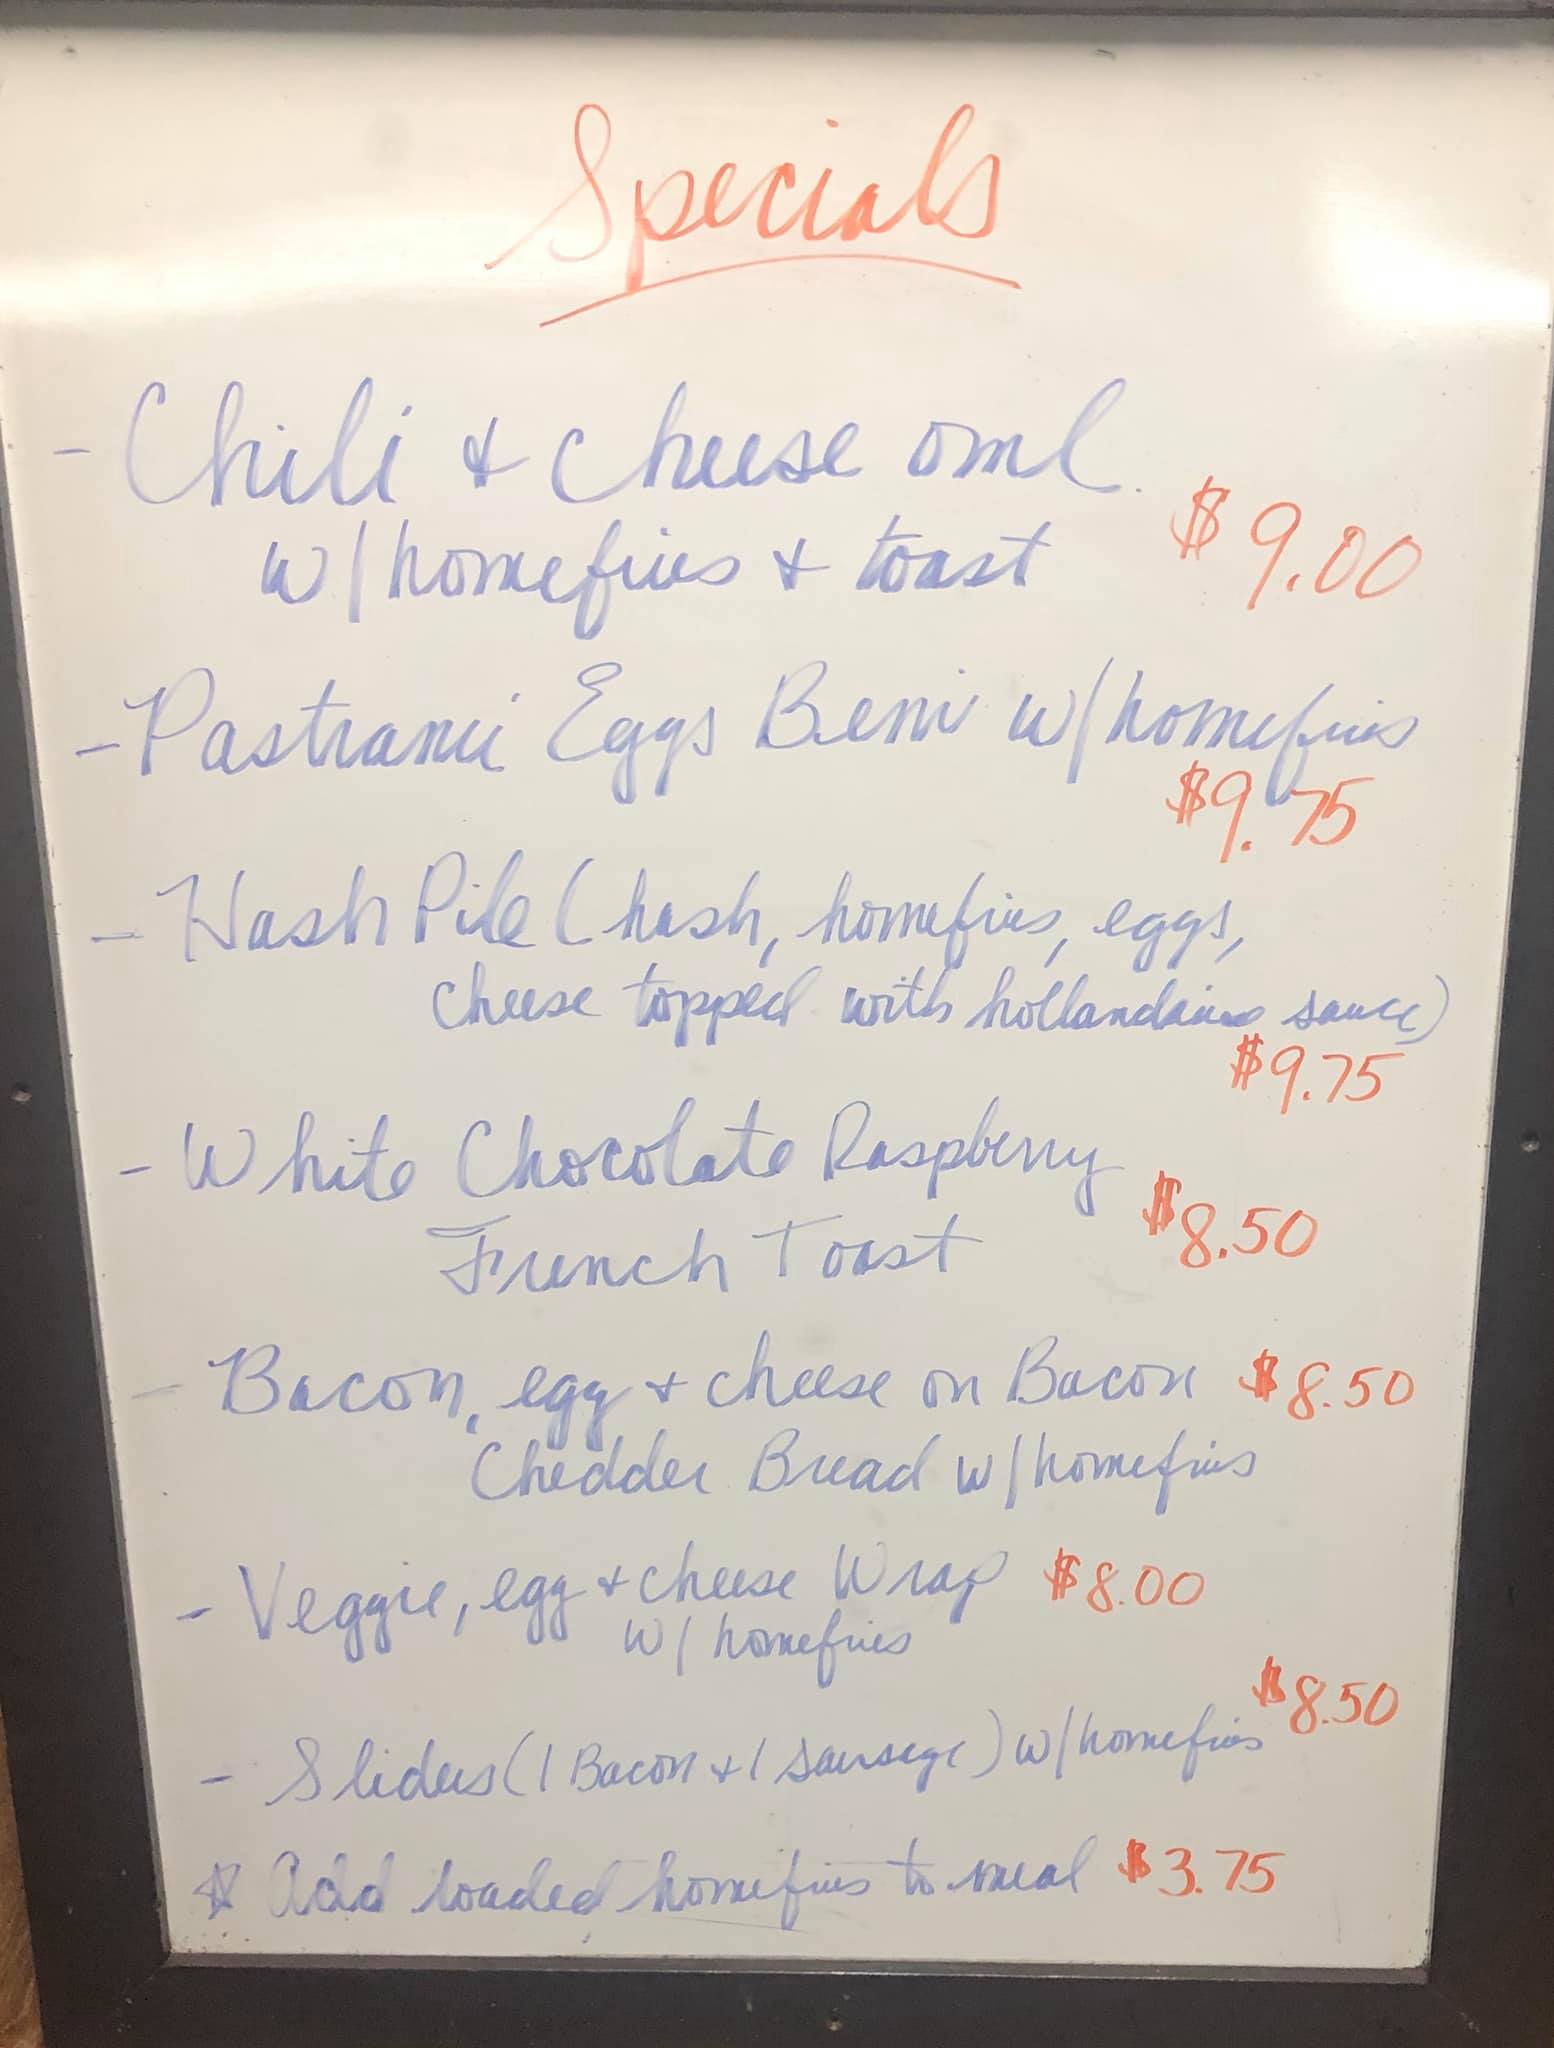 Specials
- Chili & Cheese oml.
w/homefries & toast $9.00
- Pastrami Eggs Beni w/homefries
$9.75
- Hash Pile (hash, homefries, eggs,
cheese topped with hollandaise sauce)
$9.75
- White Chocolate Raspberry
French Toast $8.50
- Bacon, egg & cheese on Bacon $8.50
Chedder Bread w/homefries
- Veggie, egg & cheese Wrap $8.00
w/homefries
$8.50
- Sliders (1 Bacon & 1 sausage) w/homefries
☆ Add loaded homefries to meal $3.75